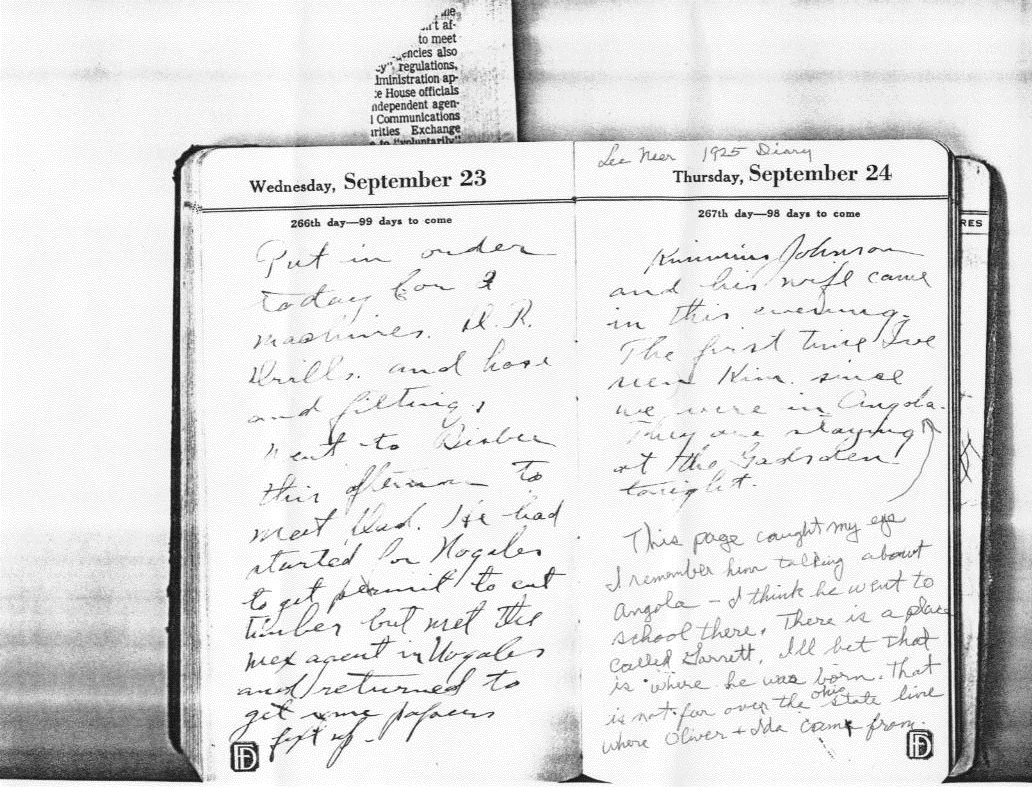 't af-
to meet
encies also
y", regulations,
dministration ap-
e House officials
ndependent agen-
l Communications
urities Exchange
to "voluntarily"
Wednesday, September 23
266th day—99 days to come
Put in order
today for 2
machines. D. R.
Drills. and hose
and fittings
Went to Bisbee
this afternoon to
meet Dad. He had
started for Nogales
to get permit to cut
timber but met the
mex agent in Nogales
and returned to
get some papers
fixt up -
FD
Lee Neer 1925 Diary
Thursday, September 24
267th day—98 days to come
Johnson
and his wife came
in this evening.
The first time I've
seen Kim. since
we were in Angola.
They are staying
at the Gadsden
tonight.
This page caught my eye
I remember him talking about
Angola - I think he went to
school there. There is a place
called Garrett, I'll bet that
is where he was born. That
is not far over the ohio state line
where Oliver + Ida came from.
FD
RES